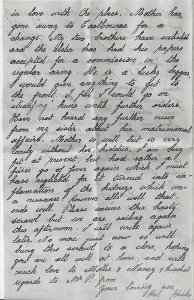 in love with the place. Mother has
gone away to Eastbourne for a
change. My two brothers have enlisted
and the elder has had his papers
accepted for a commission in the
regular army. He is a lucky beggar,
I would give anything to get to
the front. Still I would go on
until further orders.
Have not heard any further news
from my sister about her matrimonial
affairs. Mother is well but is very
lonely without her
but at present, but had rather a
go a time ago which I must
had neglected for it turned into in-
flamation of the kidneys which was
a nuisance however alls well that
ends well. Please excuse this
scrawl, however we are sailing again
this afternoon. I will write again
later. No more just now so will
bring this scrawl to a close, hoping
you are all well at home, and with
much love to Mother & Nancy & kindest
regards to Mr P. from
Yours loving son